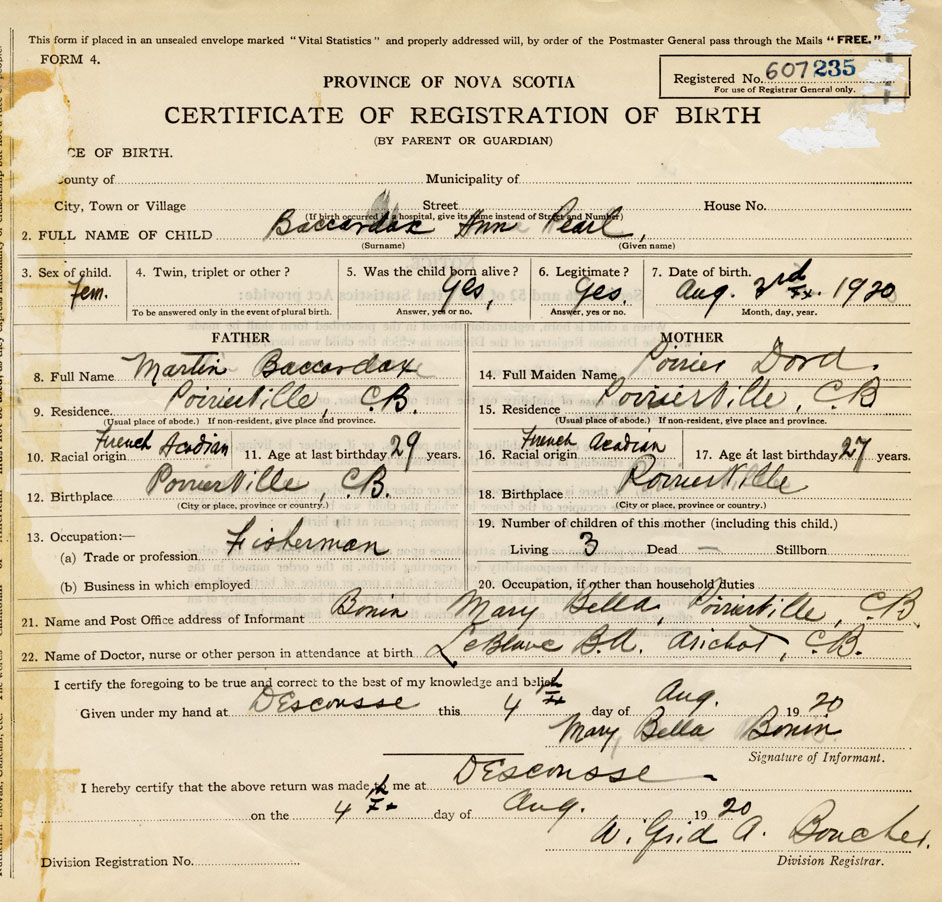 This form if placed in an unsealed envelope marked "Vital Statistics" and properly addressed will, by order of the Postmaster General pass through the Mails "FREE."
FORM 4.
Registered No. 607235
For use of Registrar General only.
PROVINCE OF NOVA SCOTIA
CERTIFICATE OF REGISTRATION OF BIRTH
(BY PARENT OR GUARDIAN)
CE OF BIRTH.
ounty of Municipality of
City, Town or Village Street House No.
(If birth occurred in a hospital, give its name instead of Street and Number)
2. FULL NAME OF CHILD Baccardax Ann Pearl,
(Surname) (Given name)
3. Sex of child. Fem.
4. Twin, triplet or other?
To be answered only in the event of plural birth.
5. Was the child born alive? Yes,
Answer, yes or no.
6. Legitimate? Yes.
Answer, yes or no.
7. Date of birth. Aug. 3rd 1920
Month, day, year.
FATHER
8. Full Name Martin Baccardax
9. Residence. Poirierville, C.B.
(Usual place of abode.) If non-resident, give place and province.
10. Racial origin French Acadian 11. Age at last birthday 29 years.
12. Birthplace Poirierville, C.B.
(City or place, province or country.)
13. Occupation:—
(a) Trade or profession Fisherman
(b) Business in which employed
MOTHER
14. Full Maiden Name Poirier Dora.
15. Residence Poirierville, C.B
(Usual place of abode.) If non-resident, give place and province.
16. Racial origin French Acadian 17. Age at last birthday 27 years.
18. Birthplace Poirierville
(City or place, province or country.)
19. Number of children of this mother (including this child.)
Living 3 Dead — Stillborn
20. Occupation, if other than household duties
21. Name and Post Office address of Informant Bonin Mary Bella, Poirierville, C.B.
22. Name of Doctor, nurse or other person in attendance at birth. LeBlanc B.A. Arichat, C.B.
I certify the foregoing to be true and correct to the best of my knowledge and belief.
Given under my hand at DEscousse this 4th day of Aug. 1920
Mary Bella Bonin
Signature of Informant.
I hereby certify that the above return was made to me at DEscousse
on the 4th day of Aug. 1920
A. Boucher.
Division Registration No. Division Registrar.